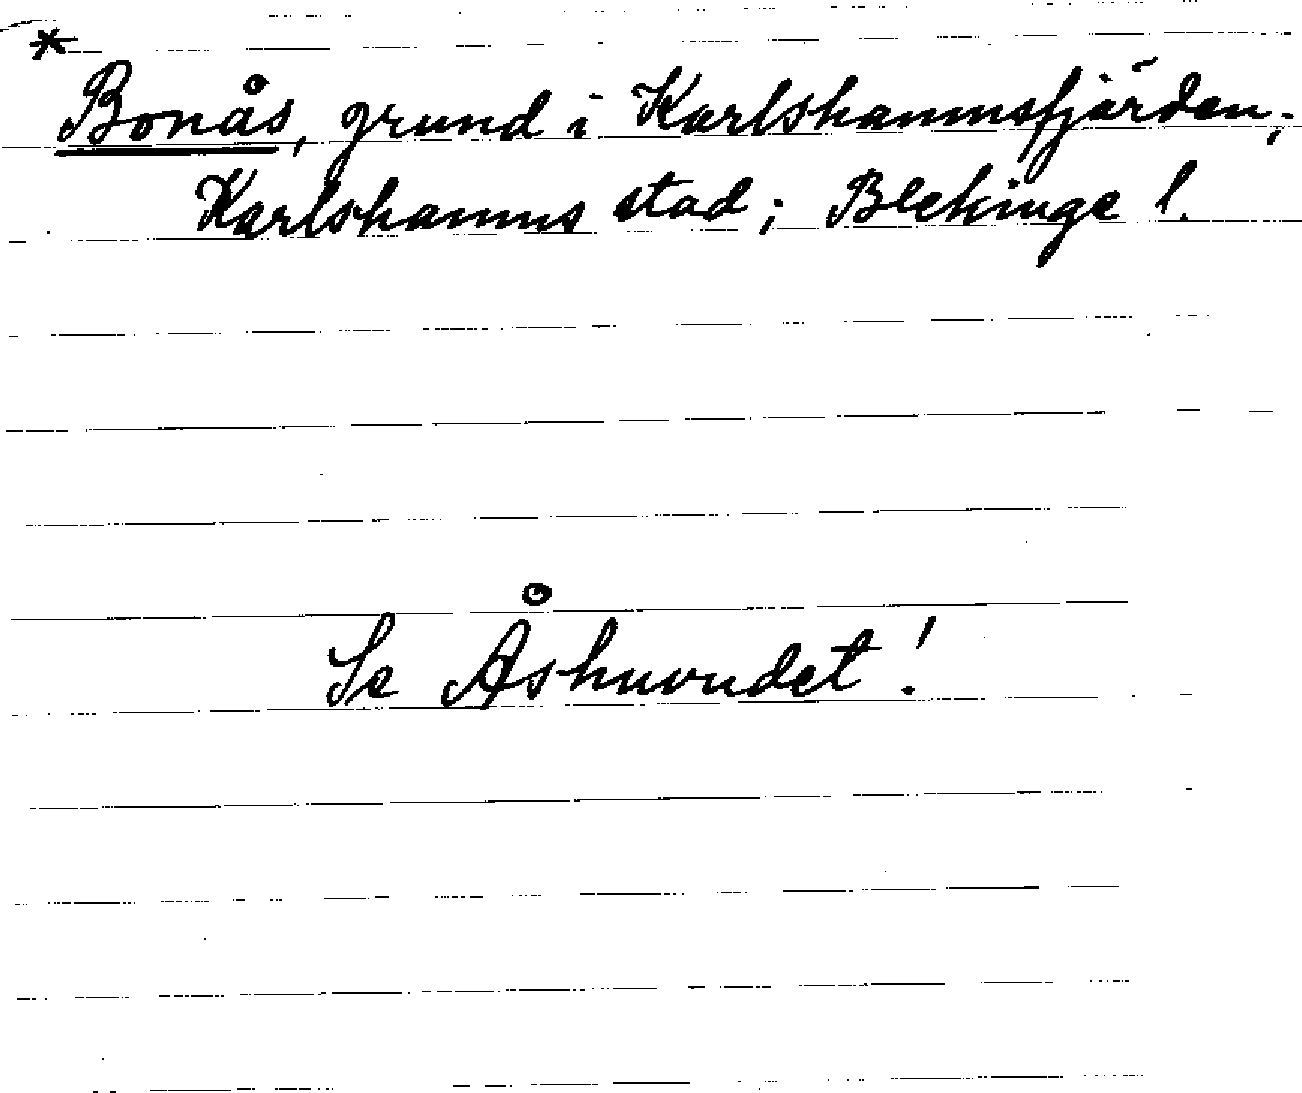 *
Bonås, grund i Karlshamnsfjärden,
Karlshamns stad; Blekinge l.
Se Åshuvudet!